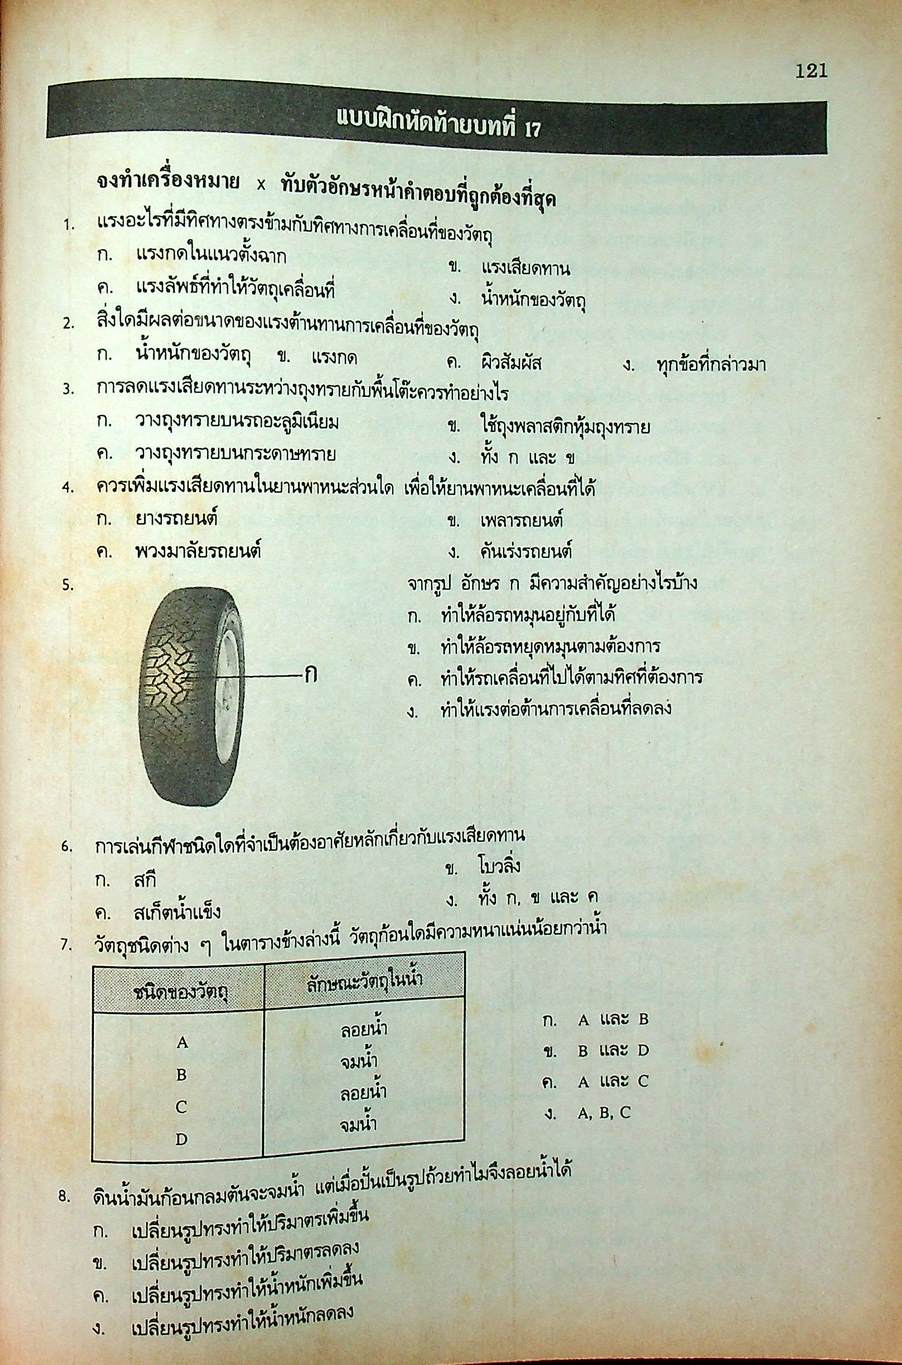 121
แบบฝึกหัดท้ายบทที่ 17
จงทำเครื่องหมาย x ทับตัวอักษรหน้าคำตอบที่ถูกต้องที่สุด
1. แรงอะไรที่มีทิศทางตรงข้ามกับทิศทางการเคลื่อนที่ของวัตถุ
ก. แรงกดในแนวตั้งฉาก ข. แรงเสียดทาน
ค. แรงลัพธ์ที่ทำให้วัตถุเคลื่อนที่ ง. น้ำหนักของวัตถุ
2. สิ่งใดมีผลต่อขนาดของแรงต้านทานการเคลื่อนที่ของวัตถุ
ก. น้ำหนักของวัตถุ ข. แรงกด ค. ผิวสัมผัส ง. ทุกข้อที่กล่าวมา
3. การลดแรงเสียดทานระหว่างถุงทรายกับพื้นโต๊ะควรทำอย่างไร
ก. วางถุงทรายบนรถอะลูมิเนียม ข. ใช้ถุงพลาสติกหุ้มถุงทราย
ค. วางถุงทรายบนกระดาษทราย ง. ทั้ง ก และ ข
4. ควรเพิ่มแรงเสียดทานในยานพาหนะส่วนใด เพื่อให้ยานพาหนะเคลื่อนที่ได้
ก. ยางรถยนต์ ข. เพลารถยนต์
ค. พวงมาลัยรถยนต์ ง. คันเร่งรถยนต์
5. จากรูป อักษร ก มีความสำคัญอย่างไรบ้าง
ก. ทำให้ล้อรถหมุนอยู่กับที่ได้
ข. ทำให้ล้อรถหยุดหมุนตามต้องการ
ก
ค. ทำให้รถเคลื่อนที่ไปได้ตามทิศที่ต้องการ
ง. ทำให้แรงต่อต้านการเคลื่อนที่ลดลง
6. การเล่นกีฬาชนิดใดที่จำเป็นต้องอาศัยหลักเกี่ยวกับแรงเสียดทาน
ก. สกี ข. โบวลิ่ง
ค. สเก็ตน้ำแข็ง ง. ทั้ง ก, ข และ ค
7. วัตถุชนิดต่าง ๆ ในตารางข้างล่างนี้ วัตถุก้อนใดมีความหนาแน่นน้อยกว่าน้ำ
ชนิดของวัตถุ ลักษณะวัตถุในน้ำ
A ลอยน้ำ
B จมน้ำ
C ลอยน้ำ
D จมน้ำ
ก. A และ B
ข. B และ D
ค. A และ C
ง. A, B, C
8. ดินน้ำมันก้อนกลมตันจะจมน้ำ แต่เมื่อปั้นเป็นรูปถ้วยทำไมจึงลอยน้ำได้
ก. เปลี่ยนรูปทรงทำให้ปริมาตรเพิ่มขึ้น
ข. เปลี่ยนรูปทรงทำให้ปริมาตรลดลง
ค. เปลี่ยนรูปทรงทำให้น้ำหนักเพิ่มขึ้น
ง. เปลี่ยนรูปทรงทำให้น้ำหนักลดลง